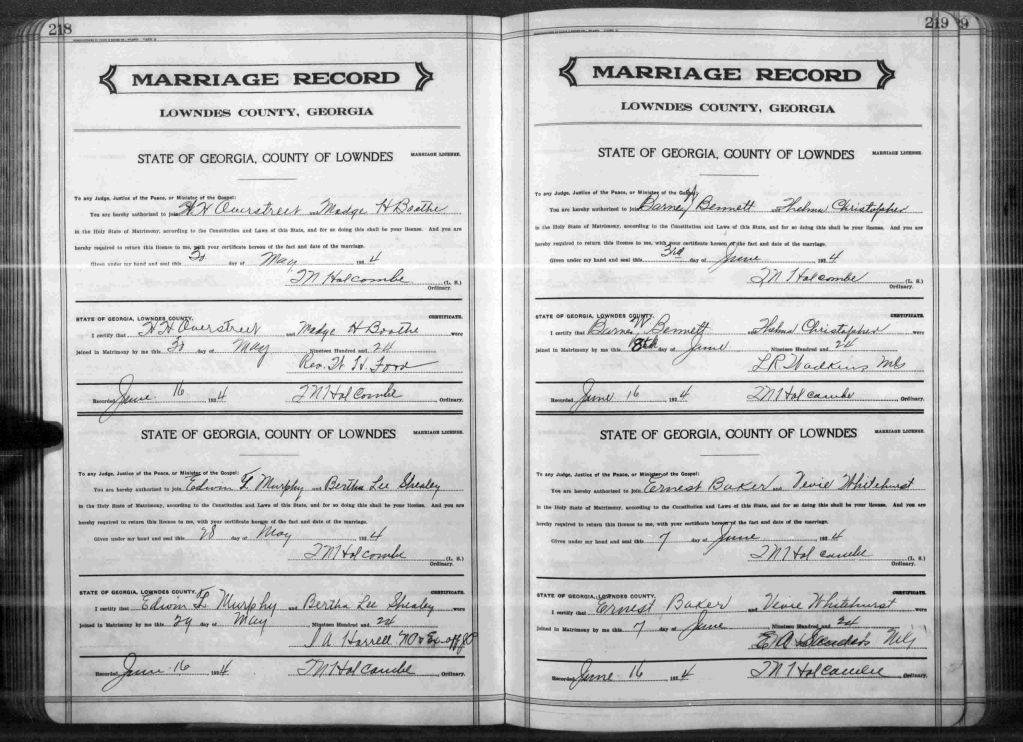 218
MARRIAGE RECORD
LOWNDES COUNTY, GEORGIA
STATE OF GEORGIA, COUNTY OF LOWNDES MARRIAGE LICENSE.
To any Judge, Justice of the Peace, or Minister of the Gospel:
You are hereby authorized to join H H Overstreet and Madge H Boothe
in the Holy State of Matrimony, according to the Constitution and Laws of this State, and for so doing this shall be your license. And you are
hereby required to return this license to me, with your certificate hereon of the fact and date of the marriage.
Given under my hand and seal this day of May, 1924
T M Holcombe (L. S.)
Ordinary.
STATE OF GEORGIA, LOWNDES COUNTY. CERTIFICATE.
I certify that H H Overstreet and Madge H Boothe were
joined in Matrimony by me this day of May Nineteen Hundred and 24
Rev. W. H. Ford
Recorded June 16 1924 T M Holcombe Ordinary.
STATE OF GEORGIA, COUNTY OF LOWNDES MARRIAGE LICENSE.
To any Judge, Justice of the Peace, or Minister of the Gospel:
You are hereby authorized to join Edwin F. Murphy and Bertha Lee Shealey
in the Holy State of Matrimony, according to the Constitution and Laws of this State, and for so doing this shall be your license. And you are
hereby required to return this license to me, with your certificate hereon of the fact and date of the marriage.
Given under my hand and seal this 28 day of May 1924
T M Holcombe (L. S.)
Ordinary.
STATE OF GEORGIA, LOWNDES COUNTY. CERTIFICATE.
I certify that Edwin F. Murphy and Bertha Lee Shealey were
joined in Matrimony by me this 29 day of May Nineteen Hundred and 24
J. A. Harrell
Recorded June 16 1924 T M Holcombe Ordinary.
219 9
MARRIAGE RECORD
LOWNDES COUNTY, GEORGIA
STATE OF GEORGIA, COUNTY OF LOWNDES MARRIAGE LICENSE.
To any Judge, Justice of the Peace, or Minister of the Gospel:
You are hereby authorized to join Barney W Bennett and Thelma Christopher
in the Holy State of Matrimony, according to the Constitution and Laws of this State, and for so doing this shall be your license. And you are
hereby required to return this license to me, with your certificate hereon of the fact and date of the marriage.
Given under my hand and seal this 3rd day of June 1924
T M Holcombe (L. S.)
Ordinary.
STATE OF GEORGIA, LOWNDES COUNTY. CERTIFICATE.
I certify that Barney W Bennett and Thelma Christopher were
joined in Matrimony by me this 8th day of June Nineteen Hundred and 24
L. R. Watkins MG
Recorded June 16 1924 T M Holcombe Ordinary.
STATE OF GEORGIA, COUNTY OF LOWNDES MARRIAGE LICENSE.
To any Judge, Justice of the Peace, or Minister of the Gospel:
You are hereby authorized to join Ernest Baker and Vevie Whitehurst
in the Holy State of Matrimony, according to the Constitution and Laws of this State, and for so doing this shall be your license. And you are
hereby required to return this license to me, with your certificate hereon of the fact and date of the marriage.
Given under my hand and seal this 7 day of June 1924
T M Holcombe (L. S.)
Ordinary.
STATE OF GEORGIA, LOWNDES COUNTY. CERTIFICATE.
I certify that Ernest Baker and Vevie Whitehurst were
joined in Matrimony by me this 7 day of June Nineteen Hundred and 24
E A Sanders MG
Recorded June 16 1924 T M Holcombe Ordinary.